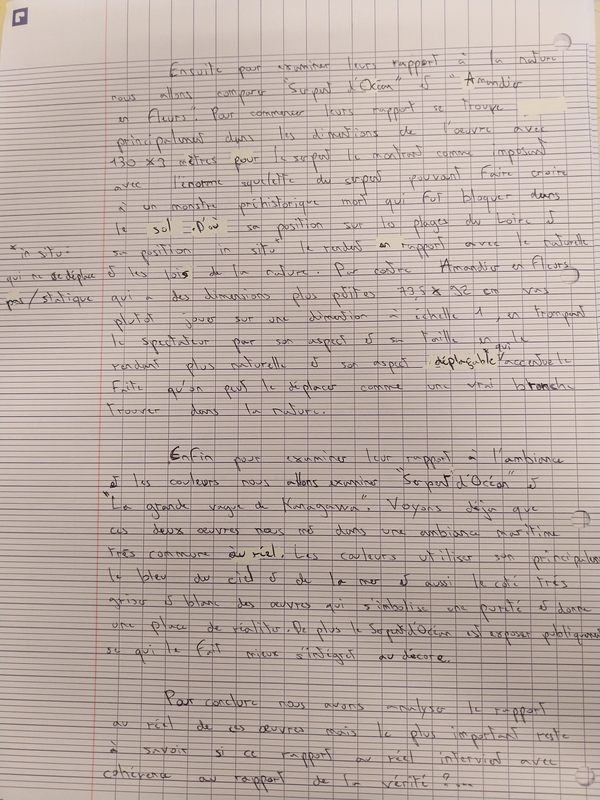 Ensuite pour examiner leurs rapport à la nature
nous allons comparer "Serpent d'Océan" et "Amandier
en Fleurs". Pour commencer leurs rapport se trouve
principalement dans les dimentions de l'œuvre avec
130 x 3 mètres pour le serpent le montrant comme imposant
avec l'énorme squelette du serpent pouvant faire croire
à un monstre préhistorique mort qui fut bloquer dans
le sol. D'où sa position sur les plages du Loire et
sa position in situ* le rendent en rapport avec le naturelle
et les lois de la nature. Par contre Amandier en Fleurs,
qui a des dimensions plus petites 73,5 x 92 cm vas
plutot jouer sur une dimention à échelle 1, en trompant
le spectateur par son aspect et sa taille en le
rendant plus naturelle et son aspect déplaçable qui accentue le
Faite qu'on peut le déplacer comme une vrai branche
trouver dans la nature.
*in situ:
qui ne se déplace
pas / statique
Enfin pour examiner leur rapport à l'ambiance
et les couleurs nous allons examiner "Serpent d'Océan" et
"La grande vague de Kanagawa". Voyons déja que
ces deux œuvres nous met dans une ambiance maritime
très commune au réel. Les couleurs utiliser son principalem
le bleu du ciel et de la mer et aussi le coté très
griser et blanc des œuvres qui simbolise une pureté et donne
une place de réaliter. De plus le Serpent d'Océan est exposer publiquement
se qui le fait mieux s'intégrer au décore.
Pour conclure nous avons analyser le rapport
au réel de ces œuvres mais le plus important reste
à savoir si ce rapport au réel intervient avec
cohérence au rapport de la vérité ?...